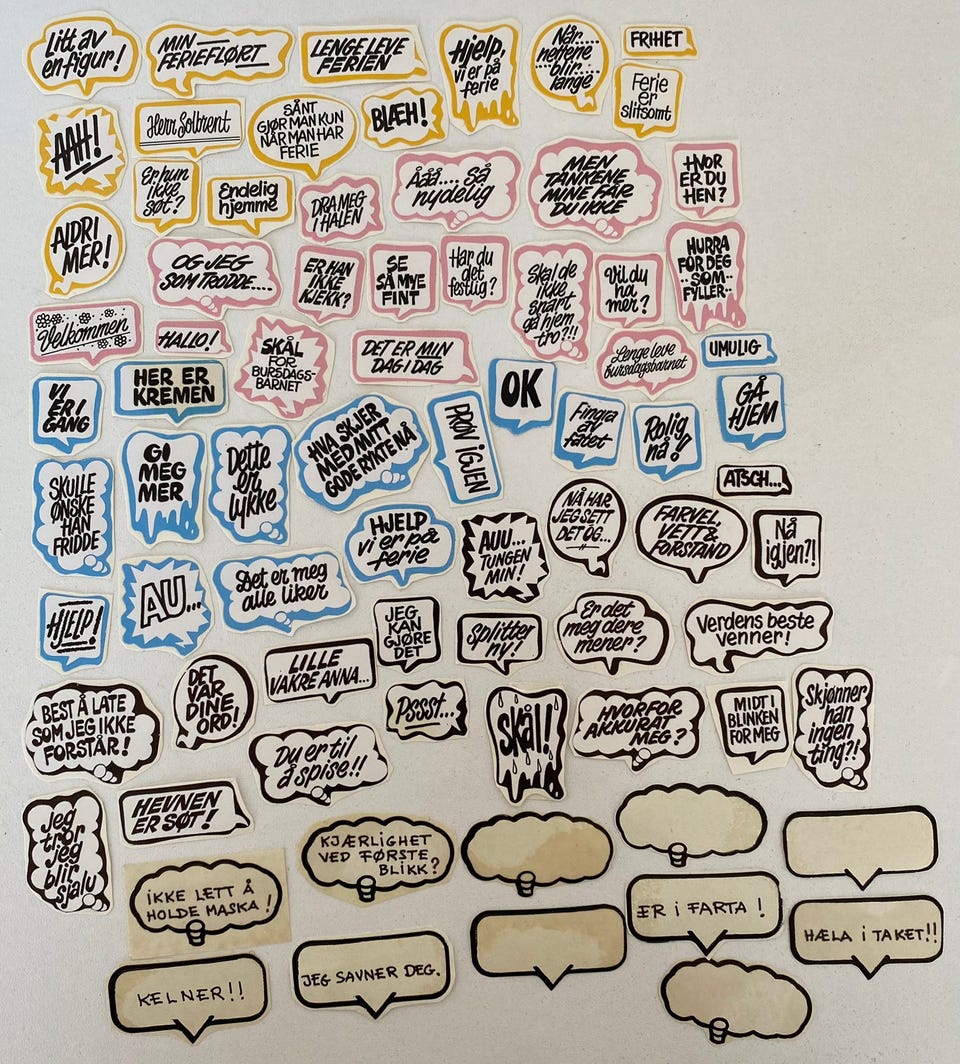 Litt av
en figur!
MIN
FERIEFLØRT
LENGE LEVE
FERIEN
Hjelp,
vi er på
ferie
Når.....
nettene
...blir...
lange
FRIHET
Ferie
er
slitsomt
AAH!
Herr Solbrent
SÅNT
GJØR MAN KUN
NÅR MAN HAR
FERIE
BLÆH!
Er hun
ikke
søt?
Endelig
hjemme
DRA MEG
I HALEN
Ååå.... så
nydelig
MEN
TANKENE
MINE FÅR
DU IKKE
HVOR
ER DU
HEN?
ALDRI
MER!
OG JEG
SOM TRODDE....
ER HAN
IKKE
KJEKK?
SE
SÅ MYE
FINT
Har du
det
festlig?
Skal de
ikke
snart
gå hjem
tro?!!
Vil du
ha
mer?
HURRA
FOR DEG
..SOM..
FYLLER..
Velkommen
HALLO!
SKÅL
FOR
BURSDAGS-
BARNET
DET ER MIN
DAG I DAG
Lenge leve
bursdagsbarnet
UMULIG
VI
ER I
GANG
HER ER
KREMEN
OK
GÅ
HJEM
GI
MEG
MER
Dette
er
lykke
HVA SKJER
MED MITT
GODE RYKTE NÅ
PRØV IGJEN
Fingra
av
fatet
Rolig
nå!
SKULLE
ØNSKE
HAN
FRIDDE
ATSCH...
HJELP
vi er på
ferie
AUU...
TUNGEN
MIN!
NÅ HAR
JEG SETT
DET OG...
FARVEL,
VETT &
FORSTAND
Nå
igjen?!
HJELP!
AU...
Det er meg
alle liker
JEG
KAN
GJØRE
DET
Splitter
ny!
Er det
meg dere
mener?
Verdens beste
venner!
BEST Å LATE
SOM JEG IKKE
FORSTÅR!
DET
VAR
DINE
ORD!
LILLE
VAKRE ANNA...
Pssst...
Du er til
å spise!!
Skål!
HVORFOR
AKKURAT
MEG?
MIDT I
BLINKEN
FOR MEG
Skjønner
han
ingen
ting?!
Jeg
tror
jeg
blir
sjalu
HEVNEN
ER SØT!
IKKE LETT Å
HOLDE MASKA!
KJÆRLIGHET
VED FØRSTE
BLIKK?
ER I FARTA!
HÆLA I TAKET!!
KELNER!!
JEG SAVNER DEG.